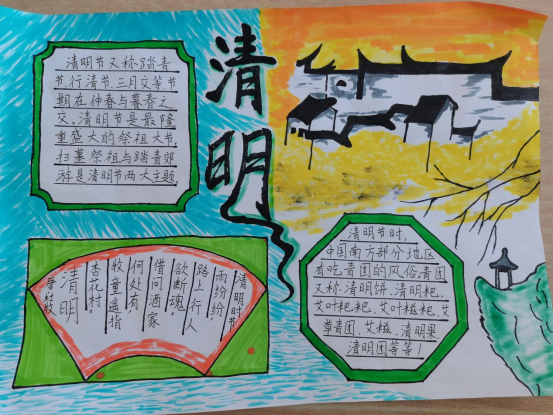 清明
清明节又称踏青
节、行清节、三月交等节
期在仲春与暮春之
交。清明节是最隆
重盛大的祭祖大节。
扫墓祭祖与踏青郊
游是清明节两大主题。
清明时节
雨纷纷
路上行人
欲断魂。
借问酒家
何处有
牧童遥指
杏花村。
清明
唐杜牧
清明节时,
中国南方部分地区
有吃青团的风俗,青团
又称:清明饼、清明粑、
艾叶粑粑、艾叶糍粑、艾
草青团、艾糍、清明果、
清明团等等!